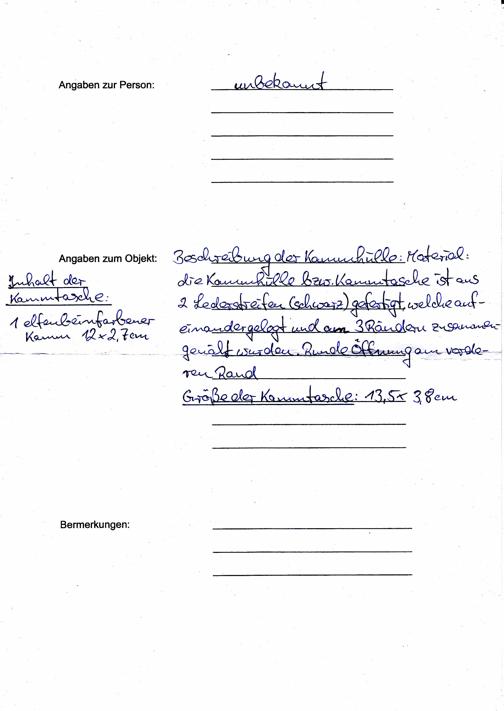 Angaben zur Person:
unbekannt
Angaben zum Objekt:
Beschreibung der Kammhülle: Material:
die Kammhülle bzw. Kammtasche ist aus
2 Lederstreifen (schwarz) gefertigt, welche auf-
einandergelegt und an 3 Rändern zusammen
genäht wurden. Runde Öffnung am vorde-
ren Rand
Größe der Kammtasche: 13,5 x 3,8 cm
Inhalt der
Kammtasche:
1 elfenbeinfarbener
Kamm 12 x 2,7 cm
Bermerkungen: